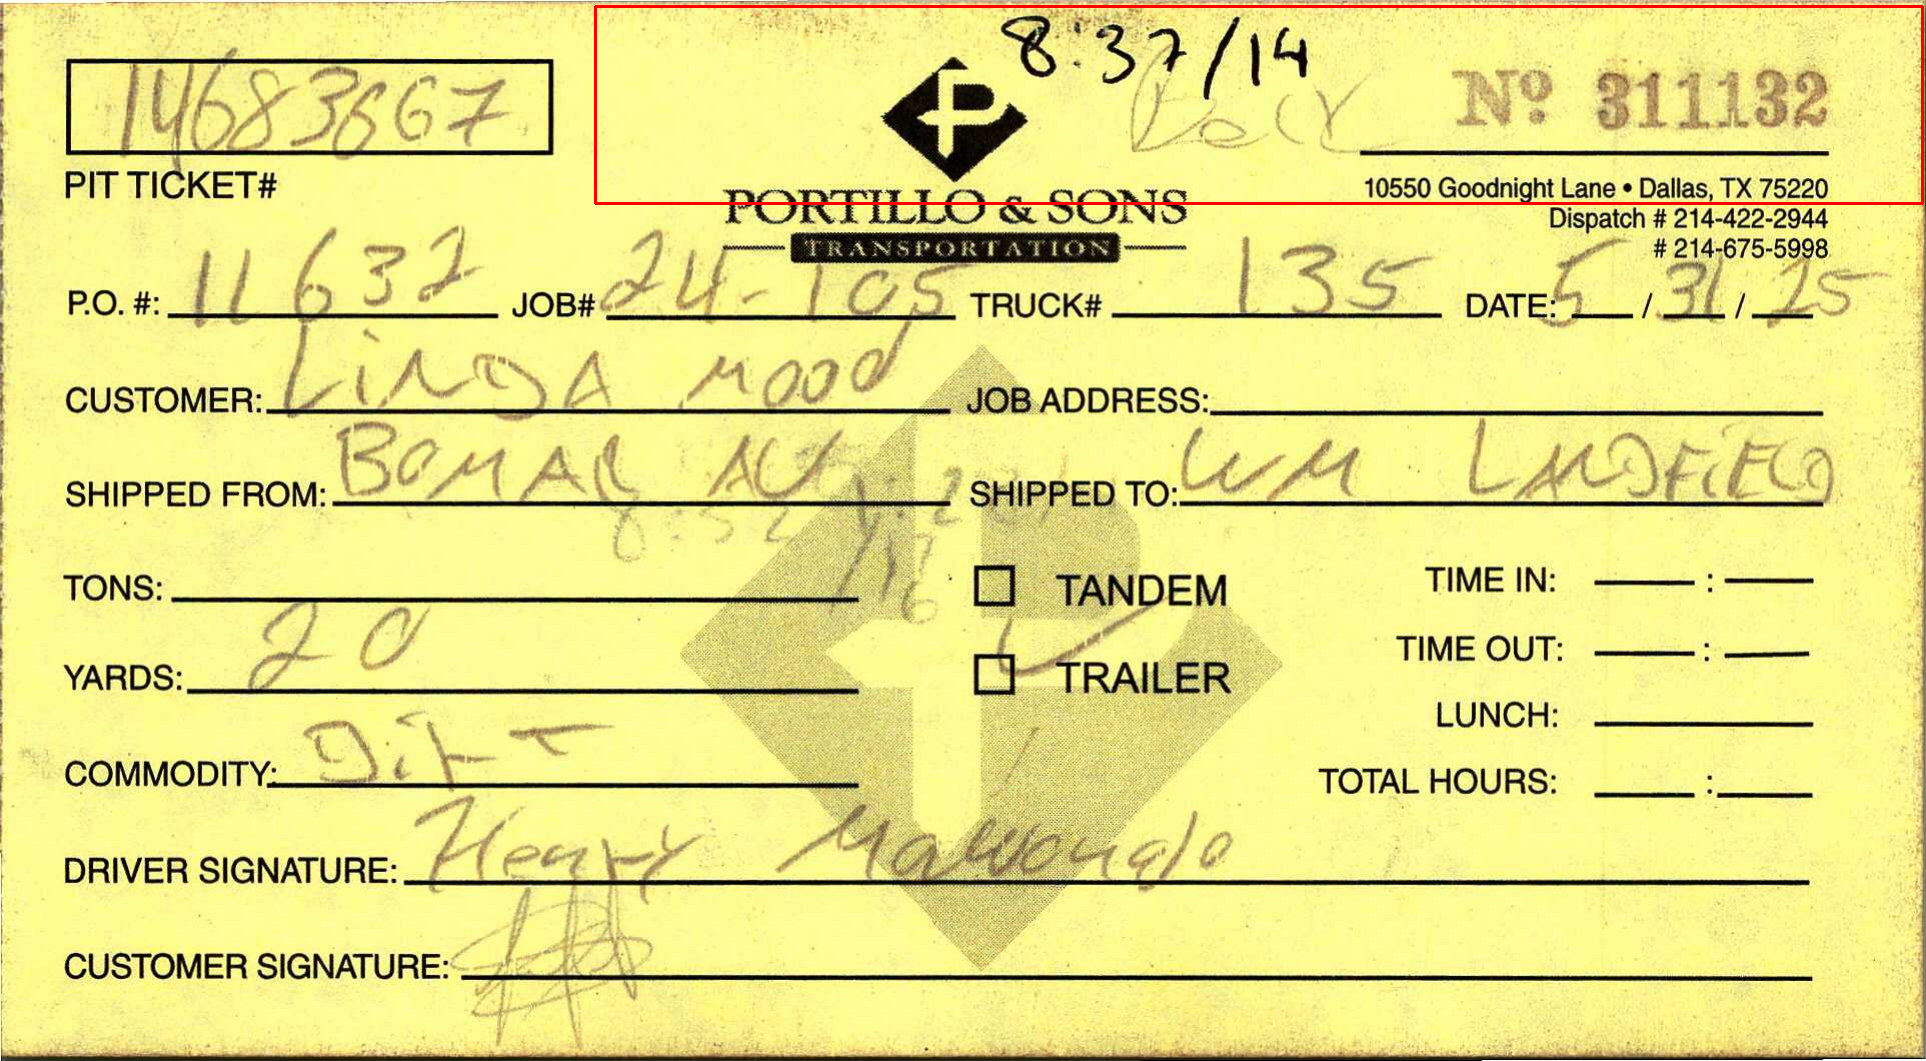 8:37/14
14683667
Nº 311132
PIT TICKET#
PORTILLO & SONS
TRANSPORTATION
10550 Goodnight Lane • Dallas, TX 75220
Dispatch # 214-422-2944
# 214-675-5998
P.O. #: 11632 JOB# 24-105 TRUCK# 135 DATE: 5/31/25
CUSTOMER: LINDA MOOD JOB ADDRESS:
SHIPPED FROM: BOMAR AV SHIPPED TO: WM LANDFIELD
8:52
TONS: TANDEM TIME IN: :
YARDS: 20 TRAILER TIME OUT: :
LUNCH:
COMMODITY: Dirt TOTAL HOURS: :
DRIVER SIGNATURE: Henry
CUSTOMER SIGNATURE: